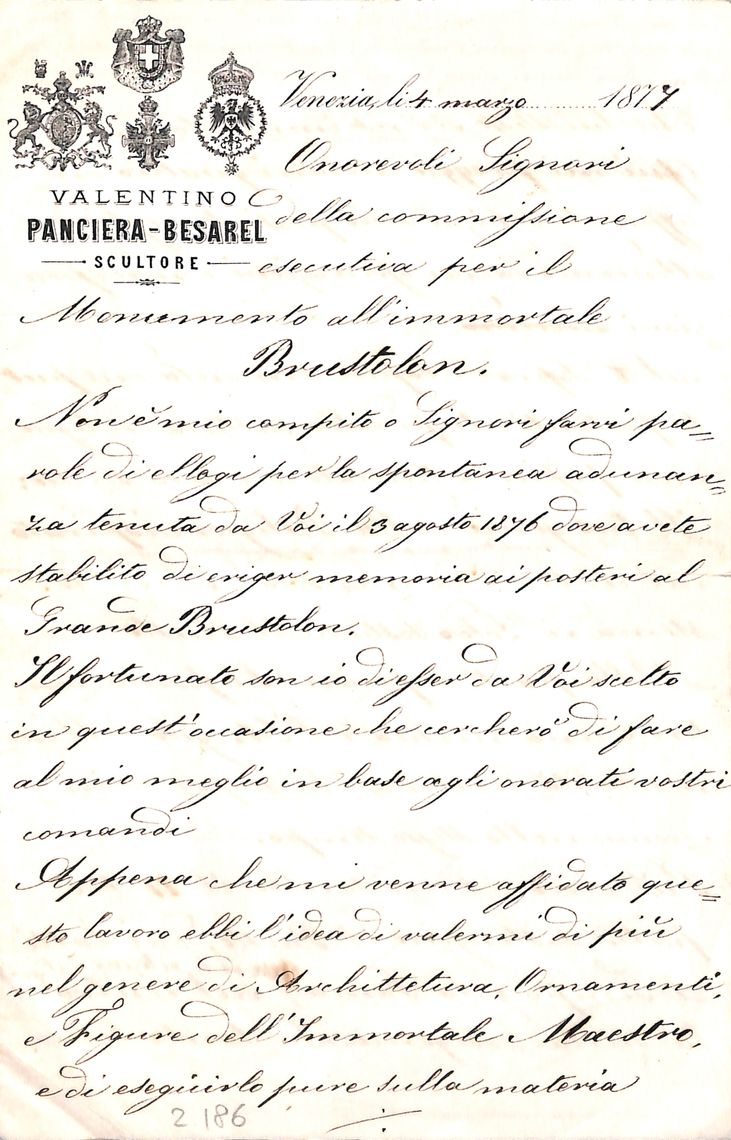 Venezia, li 4 marzo 1877
VALENTINO
PANCIERA-BESAREL
SCULTORE
Onorevoli Signori
della commissione
esecutiva per il
Monumento all'immortale
Brustolon.
Non è mio compito o Signori farvi pa=
role di ellogi per la spontanea adunan=
za tenuta da Voi il 3 agosto 1876 dove avete
stabilito di eriger memoria ai posteri al
Grande Brustolon.
Il fortunato son io di esser da Voi scelto
in quest'occasione che cercherò di fare
al mio meglio in base agli onorati vostri
comandi
Appena che mi venne affidato que=
sto lavoro ebbi l'idea di valermi di più
nel genere di Archittetura, Ornamenti,
e Figure dell'Immortale Maestro,
e di eseguirlo pure sulla materia
2 186